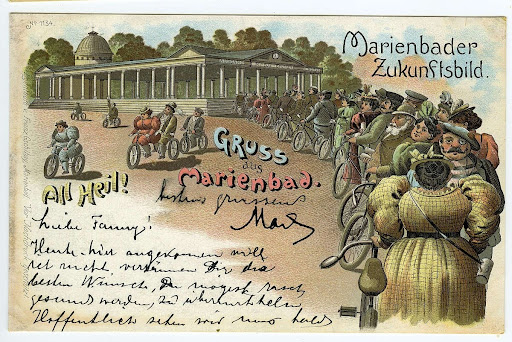 No 1134.
Marienbader
Zukunftsbild.
Gruss
aus
Marienbad.
All Heil!
bestens grüssend
Liebe Fanny!
Heute hier angekommen will
ich nicht
besten Wunsch, Du mögest rasch
gesund werden, zu übermitteln.
Hoffentlich sehen wir uns bald